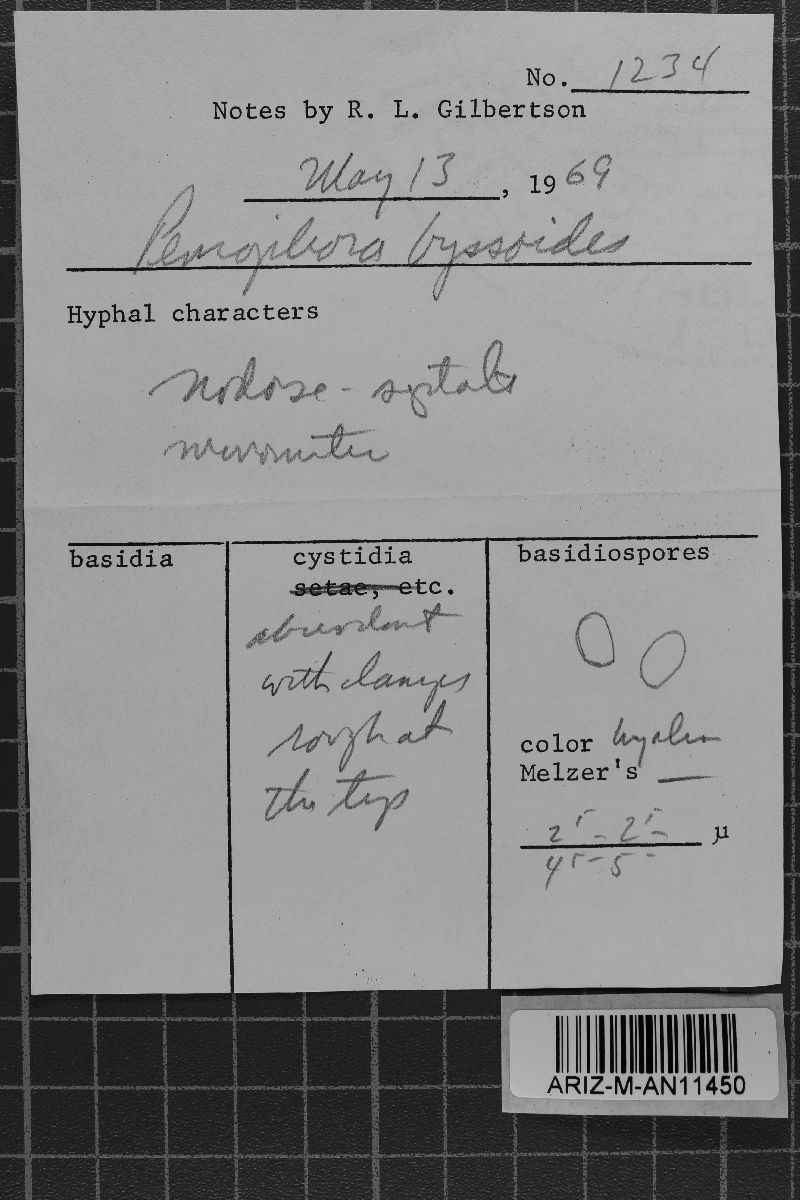 No. 1234
Notes by R. L. Gilbertson
May 13, 1969
Peniophora byssoides
Hyphal characters
nodose-septate
basidia
cystidia
setae, etc.
abundant
with clamps
rough at
the tip
basidiospores
color hyalin
Melzer's —
µ
ARIZ-M-AN11450